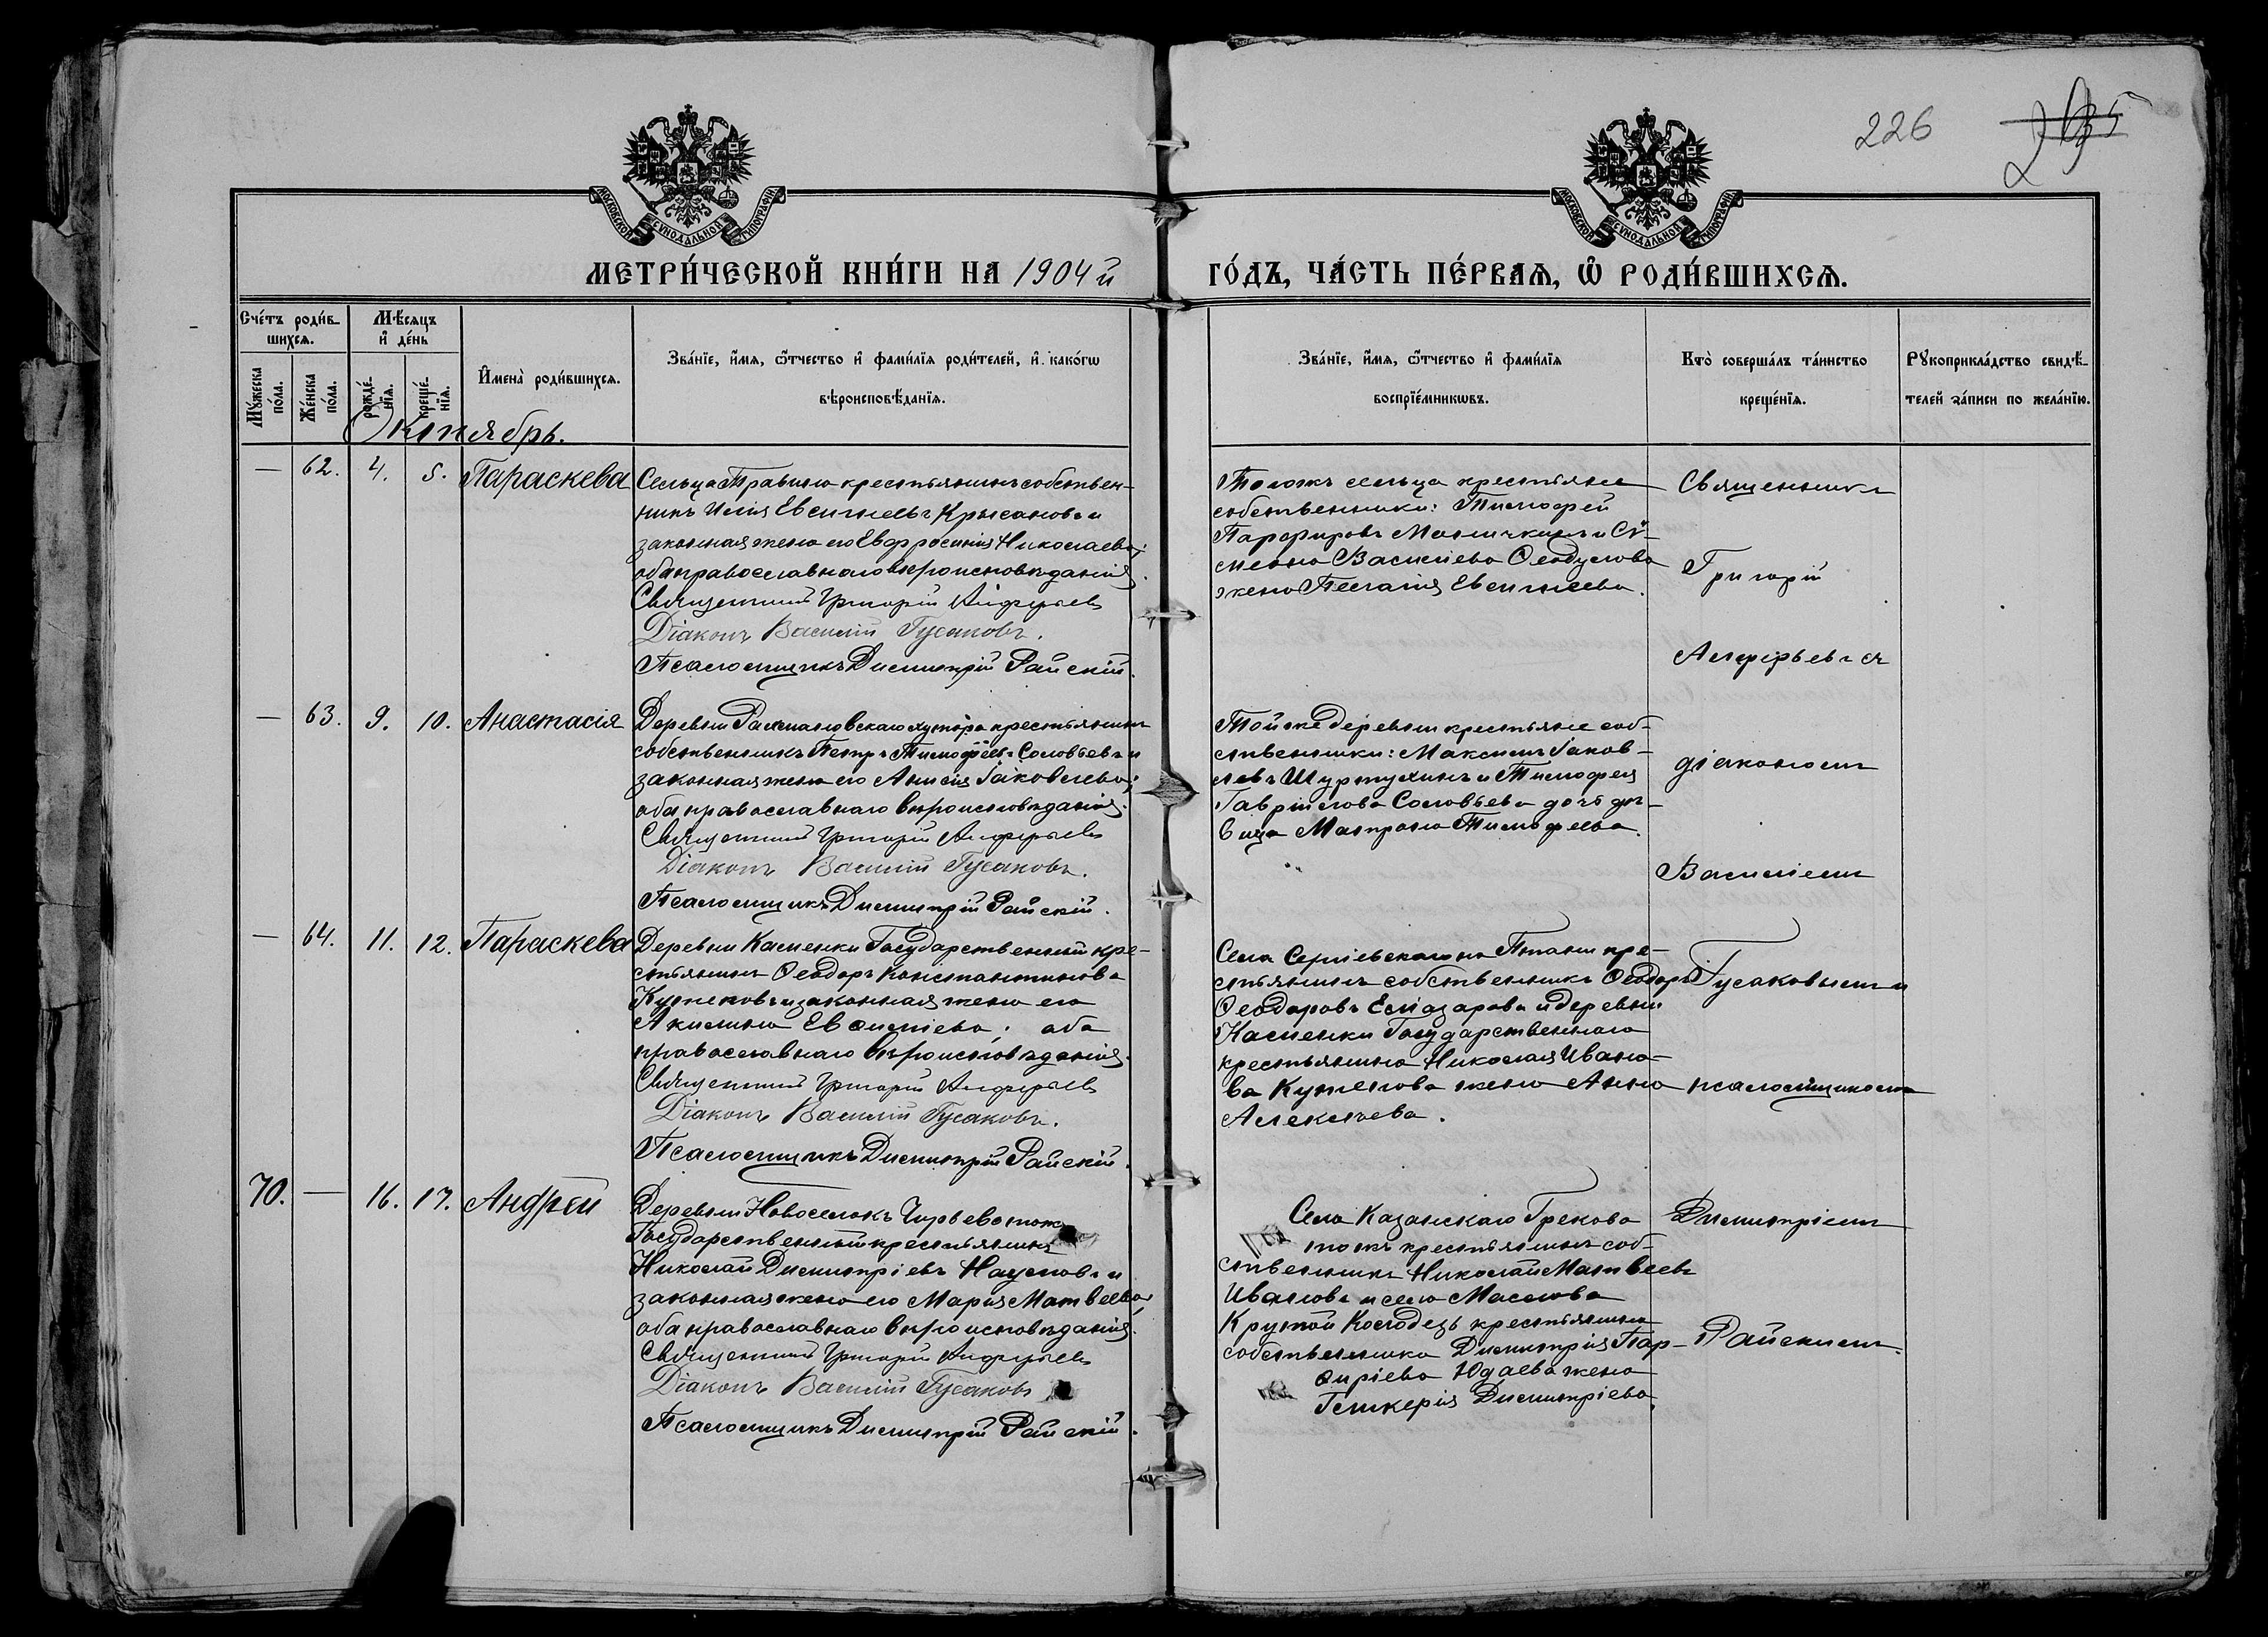 226
235
МОСКОВСКОЙ СѴНОДАЛЬНОЙ ТИПОГРАФІИ
МОСКОВСКОЙ СѴНОДАЛЬНОЙ ТИПОГРАФІИ
МЕТРИ́ЧЕСКОЙ КНИ́ГИ НА 1904й ГО́ДЪ, ЧА́СТЬ ПЕ́РВАѦ, Ѡ҆ РОДИ́ВШИХСѦ.
Сче́тъ роди́в-
шихсѧ.
Мꙋ́жеска
по́ла.
Же́нска
по́ла.
Мѣ́сѧцъ
и҆ де́нь
рожде́-
нїѧ.
креще́-
нїѧ.
И҆мена̀ роди́вшихсѧ.
Зва́нїе, и҆́мѧ, ѻ҆́тчество и҆ фами́лїѧ роди́телей, и҆ како́гѡ
вѣроисповѣ́данїѧ.
Зва́нїе, и҆́мѧ, ѻ҆́тчество и҆ фами́лїѧ
воспрїе́мникѡвъ.
Кто̀ соверша́лъ та́инство
креще́нїѧ.
Рꙋкоприкла́дство свидѣ́-
телей за́писи по жела́нїю.
Октябрь.
— 62. 4. 5. Параскева
Сельца крестьянинъ собствен-
никъ Илія Евсигнеевъ Крысановъ и
законная жена его Евфросинія Николаева;
оба православнаго вѣроисповѣданія.
Священникъ Григорій Алферьевъ
Діаконъ Василій Гусаковъ.
Псаломщикъ Димитрій Райскій.
Тогожъ сельца крестьяне
собственники: Тимофей
Парфировъ и Си-
меона Васильева Ѳеодулова
жена Пелагія Евсигнеева.
— 63. 9. 10. Анастасія
Деревни Рахмановскаго хутора крестьянинъ
собственникъ Петръ Тимофеевъ Соловьевъ и
законная жена его Анисія Іаковлева;
оба православнаго вѣроисповѣданія.
Священникъ Григорій Алферьевъ
Діаконъ Василій Гусаковъ.
Псаломщикъ Димитрій Райскій.
Той же деревни крестьяне соб-
ственники: Максимъ Іаков-
левъ Шуртухинъ и Тимофея
Гавріилова Соловьева дочь дѣ-
вица Матрона Тимофеева.
— 64. 11. 12. Параскева
Деревни Каменки Государственный кре-
стьянинъ Ѳеодоръ Константиновъ
и законная жена его
Акилина Евѳиміева; оба
православнаго вѣроисповѣданія.
Священникъ Григорій Алферьевъ
Діаконъ Василій Гусаковъ.
Псаломщикъ Димитрій Райскій.
Села Сергіевскаго на Птани кре-
стьянинъ собственникъ Ѳеодоръ
Ѳеодоровъ Елиазаровъ и деревни
Каменки Государственнаго
крестьянина Николая Ивано-
ва жена Анна
Алексѣева.
70. — 16. 17. Андрей
Деревни Новоселокъ Чирьево тожъ
Государственный крестьянинъ
Николай Димитріевъ Наумовъ и
законная жена его Марія Матвеева;
оба православнаго вѣроисповѣданія.
Священникъ Григорій Алферьевъ
Діаконъ Василій Гусаковъ
Псаломщикъ Димитрій Райскій.
Села Казанскаго Грекова
тожъ крестьянинъ соб-
ственникъ Николай Матвеевъ
Ивановъ и села Маслова
Крутой Колодезь крестьянина
собственника Димитрія Пар-
ѳиріева Юдаева жена
Гликерія Димитріева.
Священникъ
Григорій
Алферьевъ съ
діакономъ
Василіемъ
Гусаковымъ и
псаломщикомъ
Димитріемъ
Райскимъ.